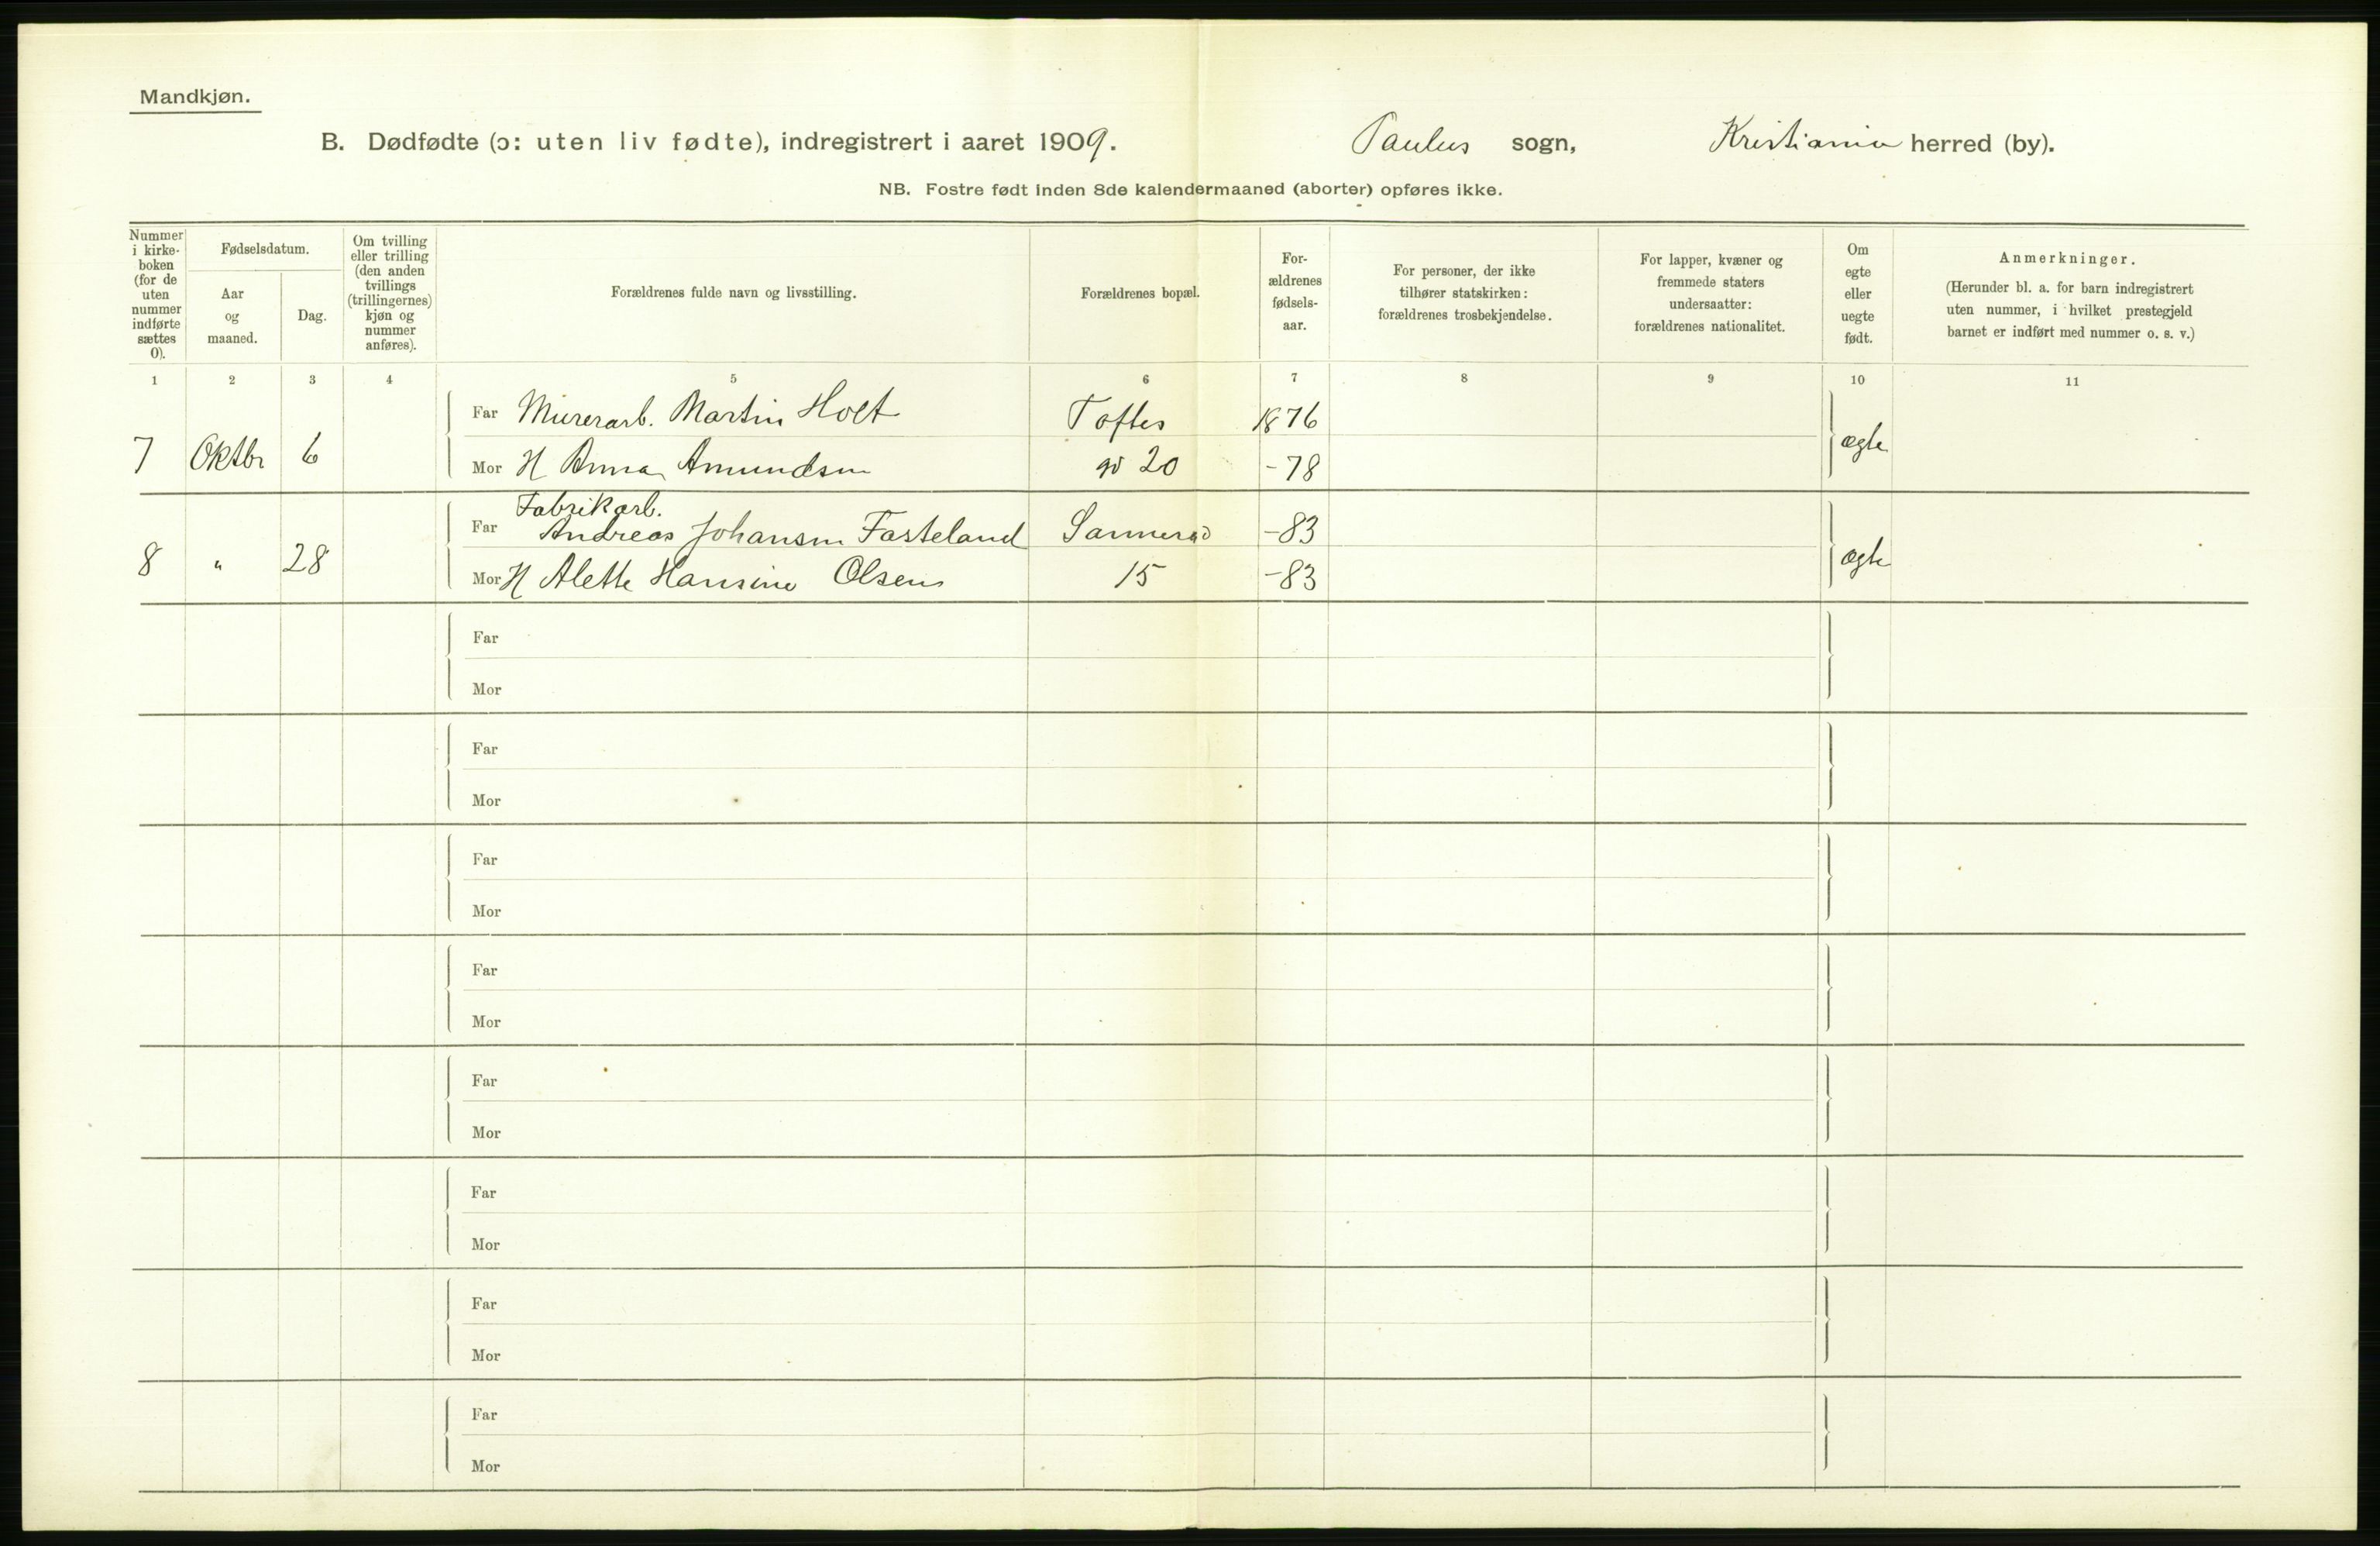 Mandkjøn.
B. Dødfødte (ɔ: uten liv fødte), indregistrert i aaret 1909. Paulus sogn, Kristiania herred (by).
NB. Fostre født inden 8de kalendermaaned (aborter) opføres ikke.
Nummer i kirke-boken (for de uten nummer indførte sættes 0).
Fødselsdatum.
Aar og maaned.
Dag.
Om tvilling eller trilling (den anden tvillings (trillingernes) kjøn og nummer anføres).
Forældrenes fulde navn og livsstilling.
Forældrenes bopæl.
For-ældrenes fødsels-aar.
For personer, der ikke tilhører statskirken: forældrenes trosbekjendelse.
For lapper, kvæner og fremmede staters undersaatter: forældrenes nationalitet.
Om egte eller uegte født.
Anmerkninger.
(Herunder bl. a. for barn indregistrert uten nummer, i hvilket prestegjeld barnet er indført med nummer o. s. v.)
1 2 3 4 5 6 7 8 9 10 11
Far Murerarb. Martin Holt Toftes 1876
7 Oktbr 6 ægte
Mor H Anna Amundsen gd 20 -78
Fabrikarb.
Far Andreas Johansen Fasteland Sannergd -83
8 " 28 ægte
Mor H Alette Hansine Olsen 15 -83
Far
Mor
Far
Mor
Far
Mor
Far
Mor
Far
Mor
Far
Mor
Far
Mor
Far
Mor